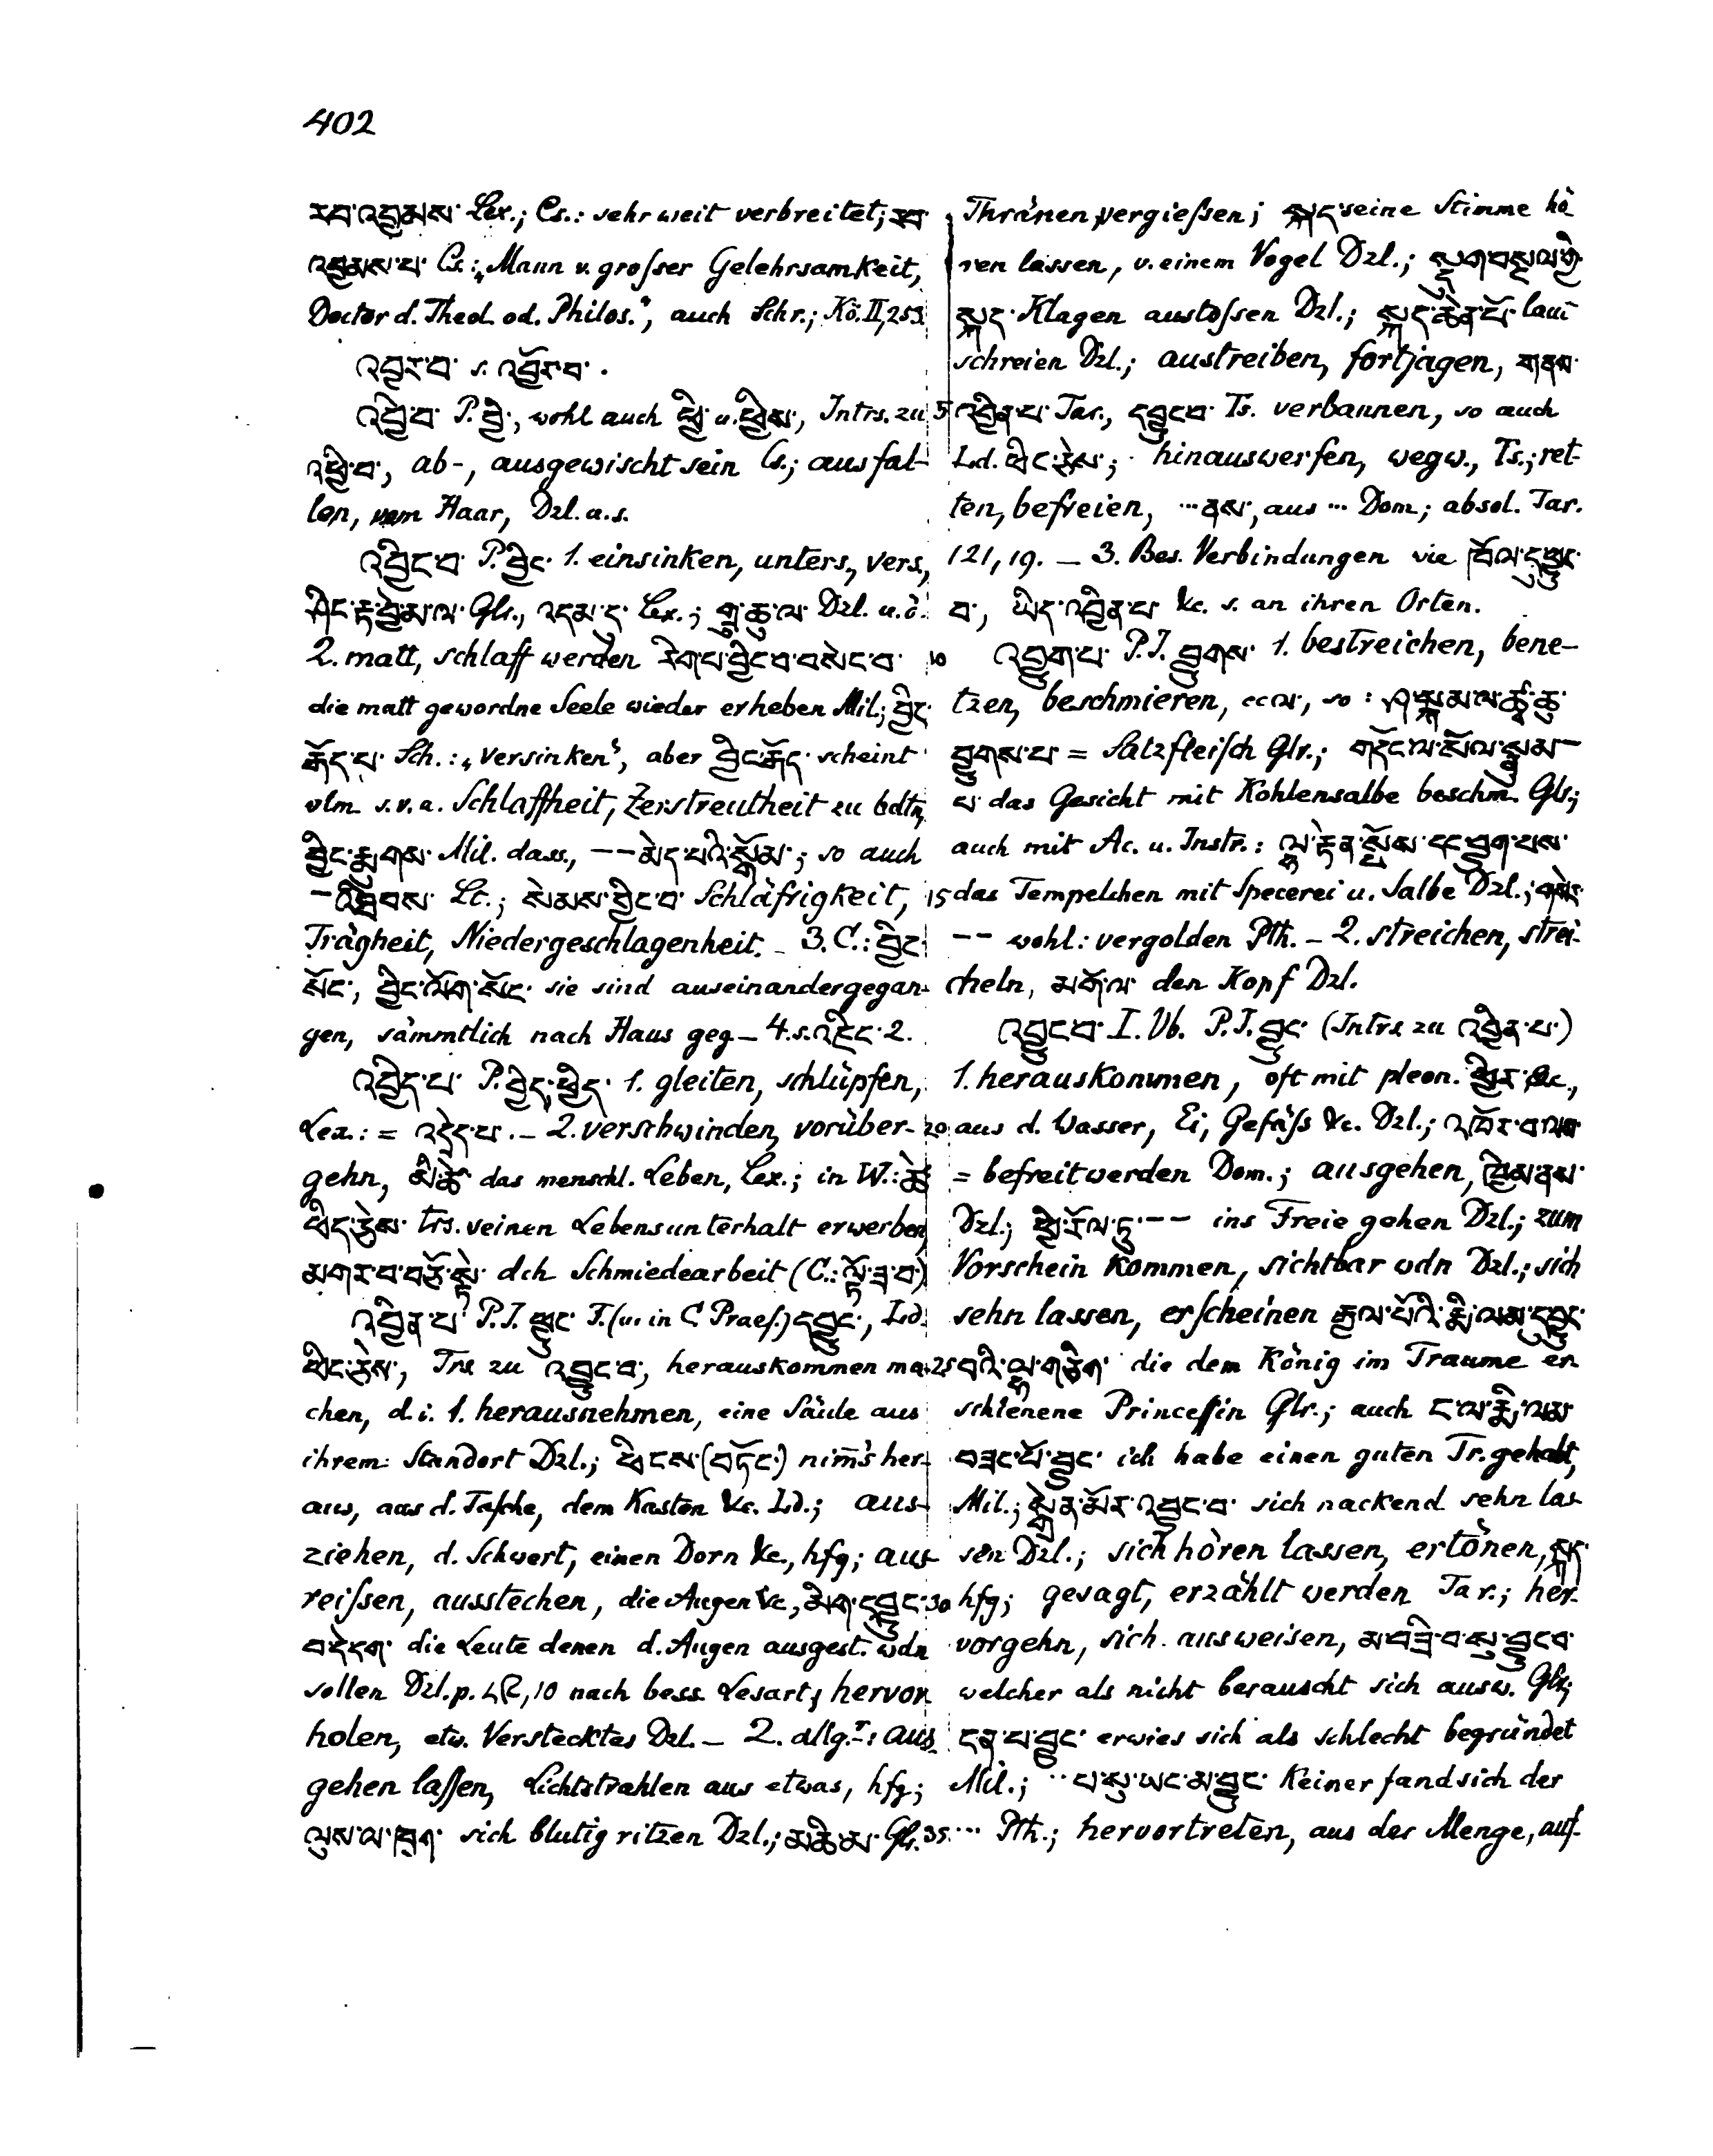 402
རབ་འབྱམས་ Lex.; Cs.: sehr weit verbreitet; རབ་
འབྱམས་པ་ Cs.: „Mann v. groſser Gelehrsamkeit,
Doctor d. Theol. od. Philos.“, auch Schr.; Kö. II, 253.
འབྱར་བ་ s. འབྱོར་བ་.
འབྱི་བ་ P. བྱི་, wohl auch ཕྱི་ u. ཕྱིས་, Intrs. zu
འཕྱི་བ་, ab-, ausgewischt sein Cs.; ausfal-
len, vom Haar, Dzl. a.s.
འབྱིང་བ་ P. བྱིང་ 1. einsinken, unters., vers.,
ཤིང་རྟ་བྱེ་མ་ལ་ Glr., འདམ་དུ་ Lex.; གྲུ་ཆུ་ལ་ Dzl. u. ö.
2. matt, schlaff werden རིག་པ་བྱིང་བ་བསེང་བ་
die matt gewordne Seele wieder erheben Mil.; བྱིང་
རྒོད་པ་ Sch.: „versinken“, aber བྱིང་རྒོད་ scheint
vlm. s.v.a. Schlaffheit, Zerstreutheit zu bdtn,
བྱིང་རྨུགས་ Mil. dass., -- མེད་པའི་སྒོམ་; so auch
Lt.; སེམས་བྱིང་བ་ Schläfrigkeit,
Trägheit, Niedergeschlagenheit. - 3. C.: བྱིང་
སོང་, བྱིང་ལོག་སོང་ sie sind auseinandergegan-
gen, sämmtlich nach Haus geg - 4. s. འཇིང་ 2.
འབྱིད་པ་ P. བྱིད་, ཕྱིད་ 1. gleiten, schlüpfen,
Lex.: = འདྲེད་པ་. - 2. verschwinden, vorüber-
gehn, མི་ཚེ་ das menschl. Leben, Lex.; in W.: ཚེ་
ཕྱིད་ཅེས་ trs. seinen Lebensunterhalt erwerben,
མགར་བ་བཅོ་སྟེ་ dch Schmiedearbeit (C.: ལྟོ་ཟ་བ་)
འབྱིན་པ་ P. I. ཕྱུང་ F. (u. in C Praeſ.) དབྱུང་, Ld.
ཕྱིང་ཅེས་, Trs zu འབྱུང་བ་, herauskommen ma-
chen, d. i. 1. herausnehmen, eine Säule aus
ihrem Standort Dzl.; ཕྱིངས་ (བཏོང་) nim̄s her-
aus, aus d. Taſche, dem Kasten &c. Ld.; aus-
ziehen, d. Schwert, einen Dorn &c., hfg; aus-
reiſsen, ausstechen, die Augen &c, མིག་དབྱུང་
བ་དེ་དག་ die Leute denen d. Augen ausgest. wdn
sollen Dzl. p. , 10 nach bess. Lesart; hervor
holen, etw. Verstecktes Dzl. - 2. allg.r: aus-
gehen laſſen, Lichtstrahlen aus etwas, hfg;
ལུས་ལ་ཁྲག་ sich blutig ritzen Dzl.; མཆི་མ་ Glr.
Thränen vergieſsen; སྐད་ seine Stimme hö
ren lassen, v. einem Vogel Dzl.; སྡུག་བསྔལ་གྱི་
སྐད་ Klagen austoſsen Dzl.; སྐད་ཆེན་པོ་ laut
schreien Dzl.; austreiben, fortjagen, གནས་
5 འབྱིན་པ་ Tar., དབྱུང་བ་ Ts. verbannen, so auch
Ld. ཕྱིང་ཅེས་; hinauswerfen, wegw., Ts.; ret-
ten, befreien, ··· ནས་, aus ··· Dom; absol. Tar.
121, 19. - 3. Bes. Verbindungen wie ཁོལ་དབྱུང་
བ་, ཡིད་འབྱིན་པ་ &c. s. an ihren Orten.
10 འབྱུག་པ་ P. I. བྱུགས་ 1. bestreichen, bene-
tzen, beschmieren, ccལ་, so: ཤ་སྐམ་ལ་ཚྭ་ཆུ་
བྱུགས་པ་ = Salzfleiſch Glr.; གདོང་ལ་སོལ་སྣུམ་ —
པ་ das Gesicht mit Kohlensalbe beschm. Glr.;
auch mit Ac. u. Instr.: ལྷ་རྟེན་སྤོས་དང་བྱུག་པས་
15 das Tempelchen mit Specerei u. Salbe Dzl.; གསེར་
-- wohl: vergolden Pth. - 2. streichen, strei-
cheln, མགོ་ལ་ den Kopf Dzl.
འབྱུང་བ་ I. Vb. P. I. བྱུང་ (Intrs zu འབྱིན་པ་)
1. herauskommen, oft mit pleon. ཕྱིར་ &c.,
20 aus d. Wasser, Ei, Gefäſs &c. Dzl.; འཁོར་བ་ལས་
= befreit werden Dom.; ausgehen, ཁྱིམ་ནས་
Dzl.; ཕྱི་རོལ་ཏུ་ -- ins Freie gehen Dzl.; zum
Vorschein kommen, sichtbar wdn Dzl.; sich
sehn lassen, erſcheinen རྒྱལ་པོའི་རྨི་ལམ་དུ་བྱུང་
25 བའི་ལྷ་གཅིག་ die dem König im Traume er
schienene Princeſſin Glr.; auch ང་ལ་རྨི་ལམ་
བཟང་པོ་བྱུང་ ich habe einen guten Tr. gehabt,
Mil.; སྒྲེན་མོར་འབྱུང་བ་ sich nackend sehn las-
sen Dzl.; sich hören lassen, ertönen, སྐད་
30 hfg; gesagt, erzählt werden Tar.; her-
vorgehn, sich ausweisen, མ་བཟི་བ་སུ་བྱུང་བ་
welcher als nicht berauscht sich ausw. Glr;
ངན་པ་བྱུང་ erwies sich als schlecht begründet
Mil.; ·· པ་སུ་ཡང་མ་བྱུང་ Keiner fand sich der
35 ··· Pth.; hervortreten, aus der Menge, auf-